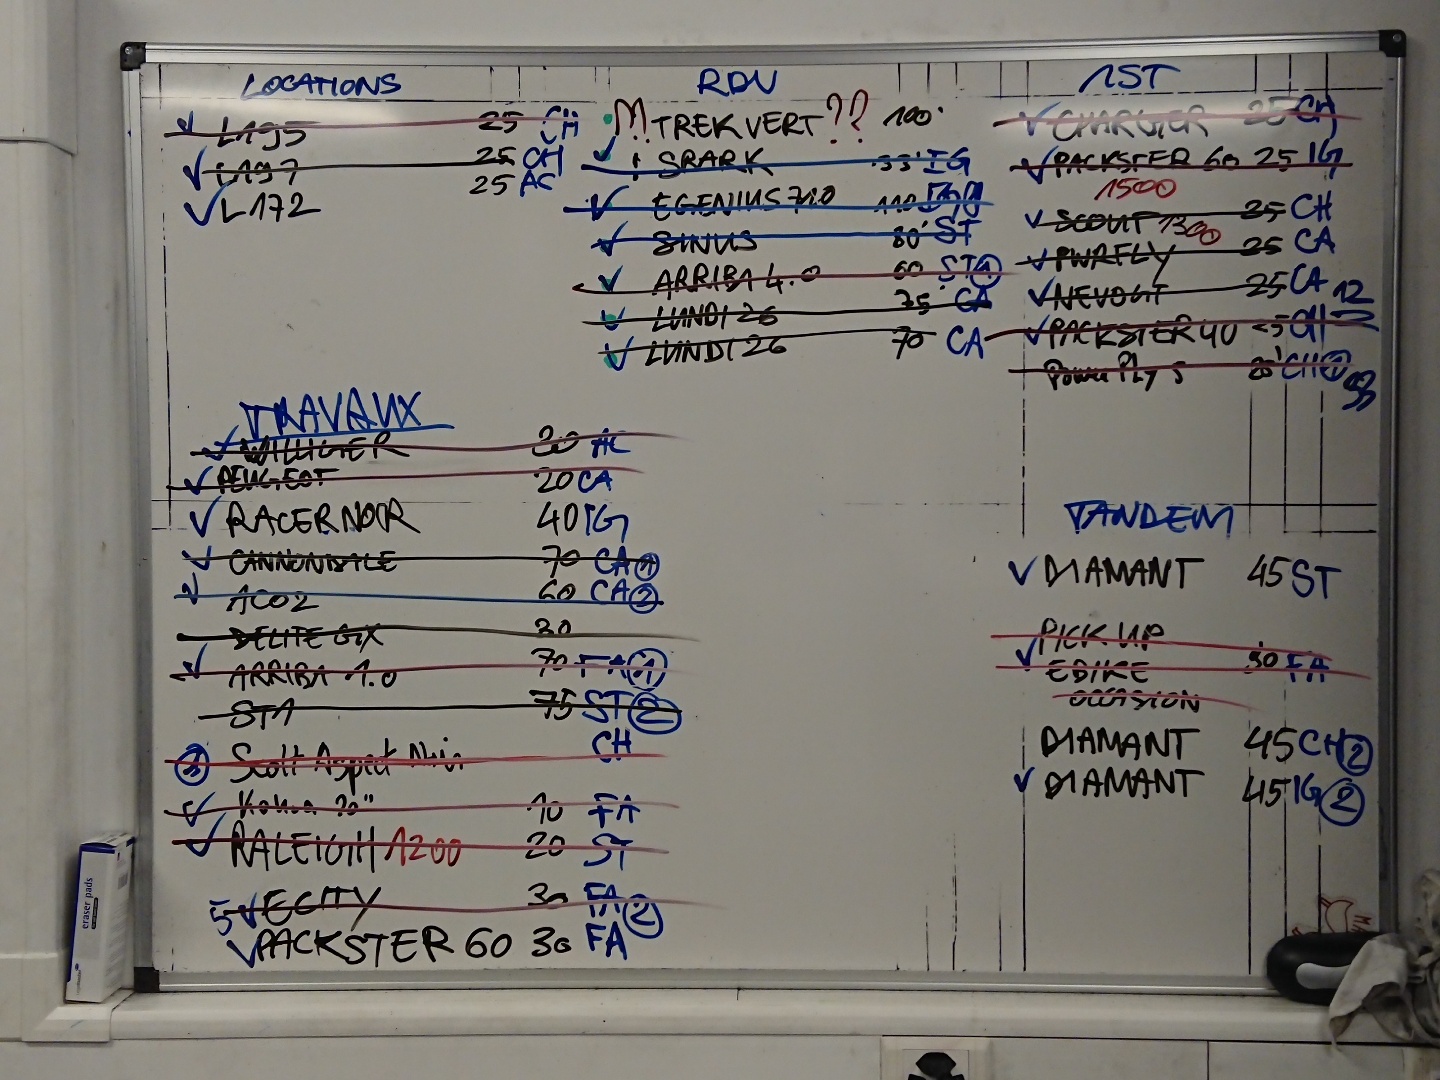 LOCATIONS
L195 25 CH
L197 25 CH
L172 25 AC
RDV
!!! TREK VERT ?? 100'
SPARK 55' IG
EGENIUS 710 110
SINUS 80' ST
ARRIBA 4.0 60 ST 1
LUNDI 26 75' CA
LUNDI 26 70 CA
1ST
CHARGER 25 CH
PACKSTER 60 25 IG
1500
SCOUT 25 CH
1300
PWRFLY 25 CA
NEVOGT 25 CA
12
PACKSTER 40 25 CH
PowerFly 5 20' CH 1
TRAVAUX
WILLIGER 20 AC
PEUGEOT 20 CA
RACER NOIR 40 IG
CANNONDALE 70 CA 1
ACO2 60 CA 2
DELITE GX 30
ARRIBA 1.0 70 FA 1
ST1 75 ST 2
Scott Aspect Noir CH
Kona 20" 10 FA
RALEIGH 1200 20 ST
5 ECITY 30 FA 2
PACKSTER 60 30 FA
TANDEM
DIAMANT 45 ST
PICK UP
EBIKE 30 FA
OCCASION
DIAMANT 45 CH 2
DIAMANT 45 IG 2
eraser pads